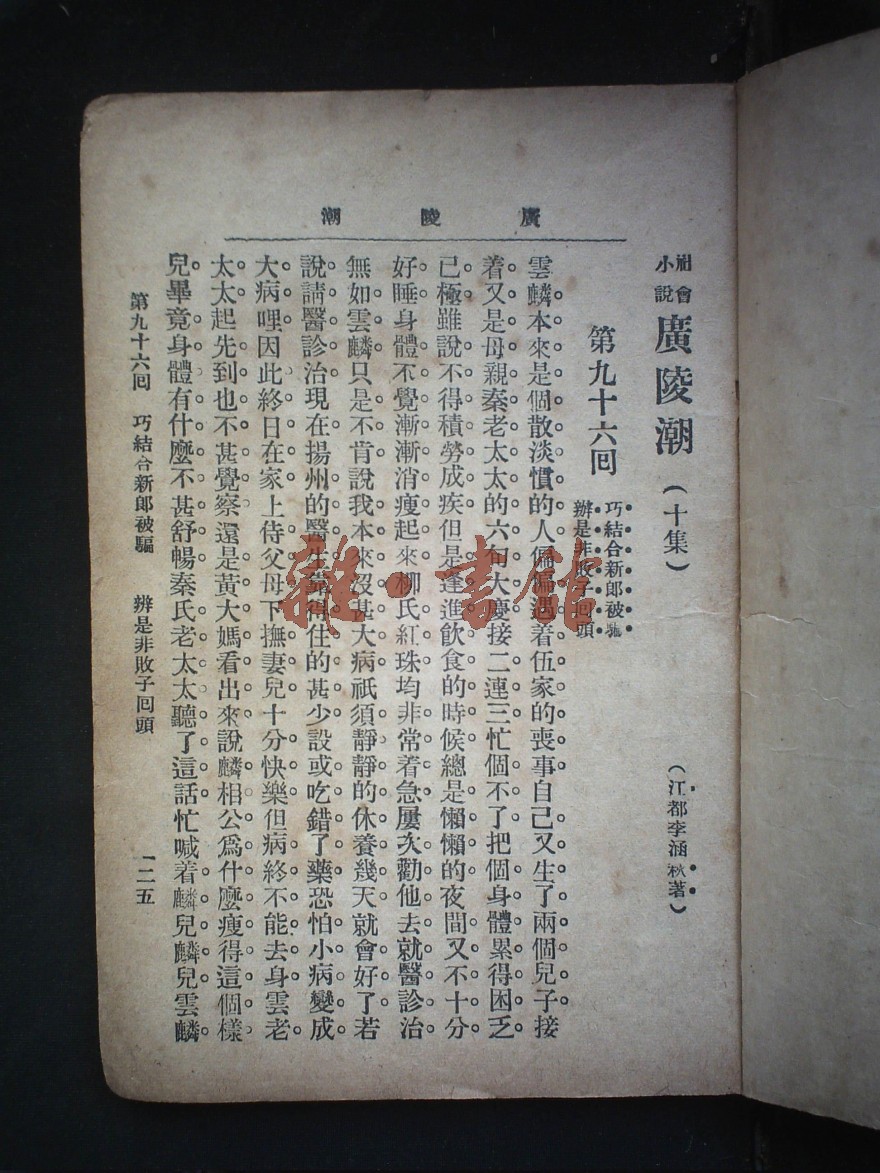 廣陵潮
社會小說 廣陵潮 （十集） （江都李涵秋著）
第九十六回 巧結合新郎被騙 辦是非敗子回頭
雲麟本來是個散淡慣的人偏偏遇着伍家的喪事自己又生了兩個兒子接
着又是母親秦老太太的六旬大慶接二連三忙個不了把個身體累得困乏
已極雖說不得積勞成疾但是逢進飲食的時候總是懶懶的夜間又不十分
好睡身體不覺漸漸消瘦起來柳氏紅珠均非常着急屢次勸他去就醫診治
無如雲麟只是不肯說我本來沒甚大病祇須靜靜的休養幾天就會好了若
說請醫診治現在揚州的醫生靠得住的甚少設或吃錯了藥恐怕小病變成
大病哩因此終日在家上侍父母下撫妻兒十分快樂但病終不能去身雲老
太太起先到也不甚覺察還是黃大媽看出來說麟相公爲什麼瘦得這個樣
兒畢竟身體有什麼不甚舒暢秦氏老太太聽了這話忙喊着麟兒麟兒雲麟
第九十六回 巧結合新郎被騙 辨是非敗子回頭 一二五
雜·書館